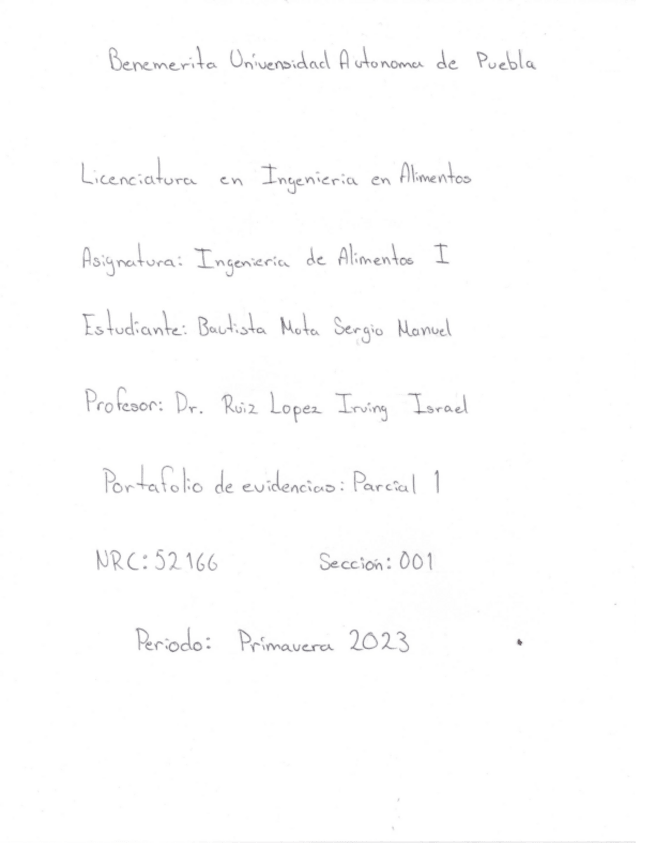 Benemerita Universidad Autonoma de Puebla
Licenciatura en Ingenieria en Alimentos
Asignatura: Ingenieria de Alimentos I
Estudiante: Bautista Mota Sergio Manuel
Profesor: Dr. Ruiz Lopez Irving Israel
Portafolio de evidencias: Parcial 1
NRC: 52166 Seccion: 001
Periodo: Primavera 2023